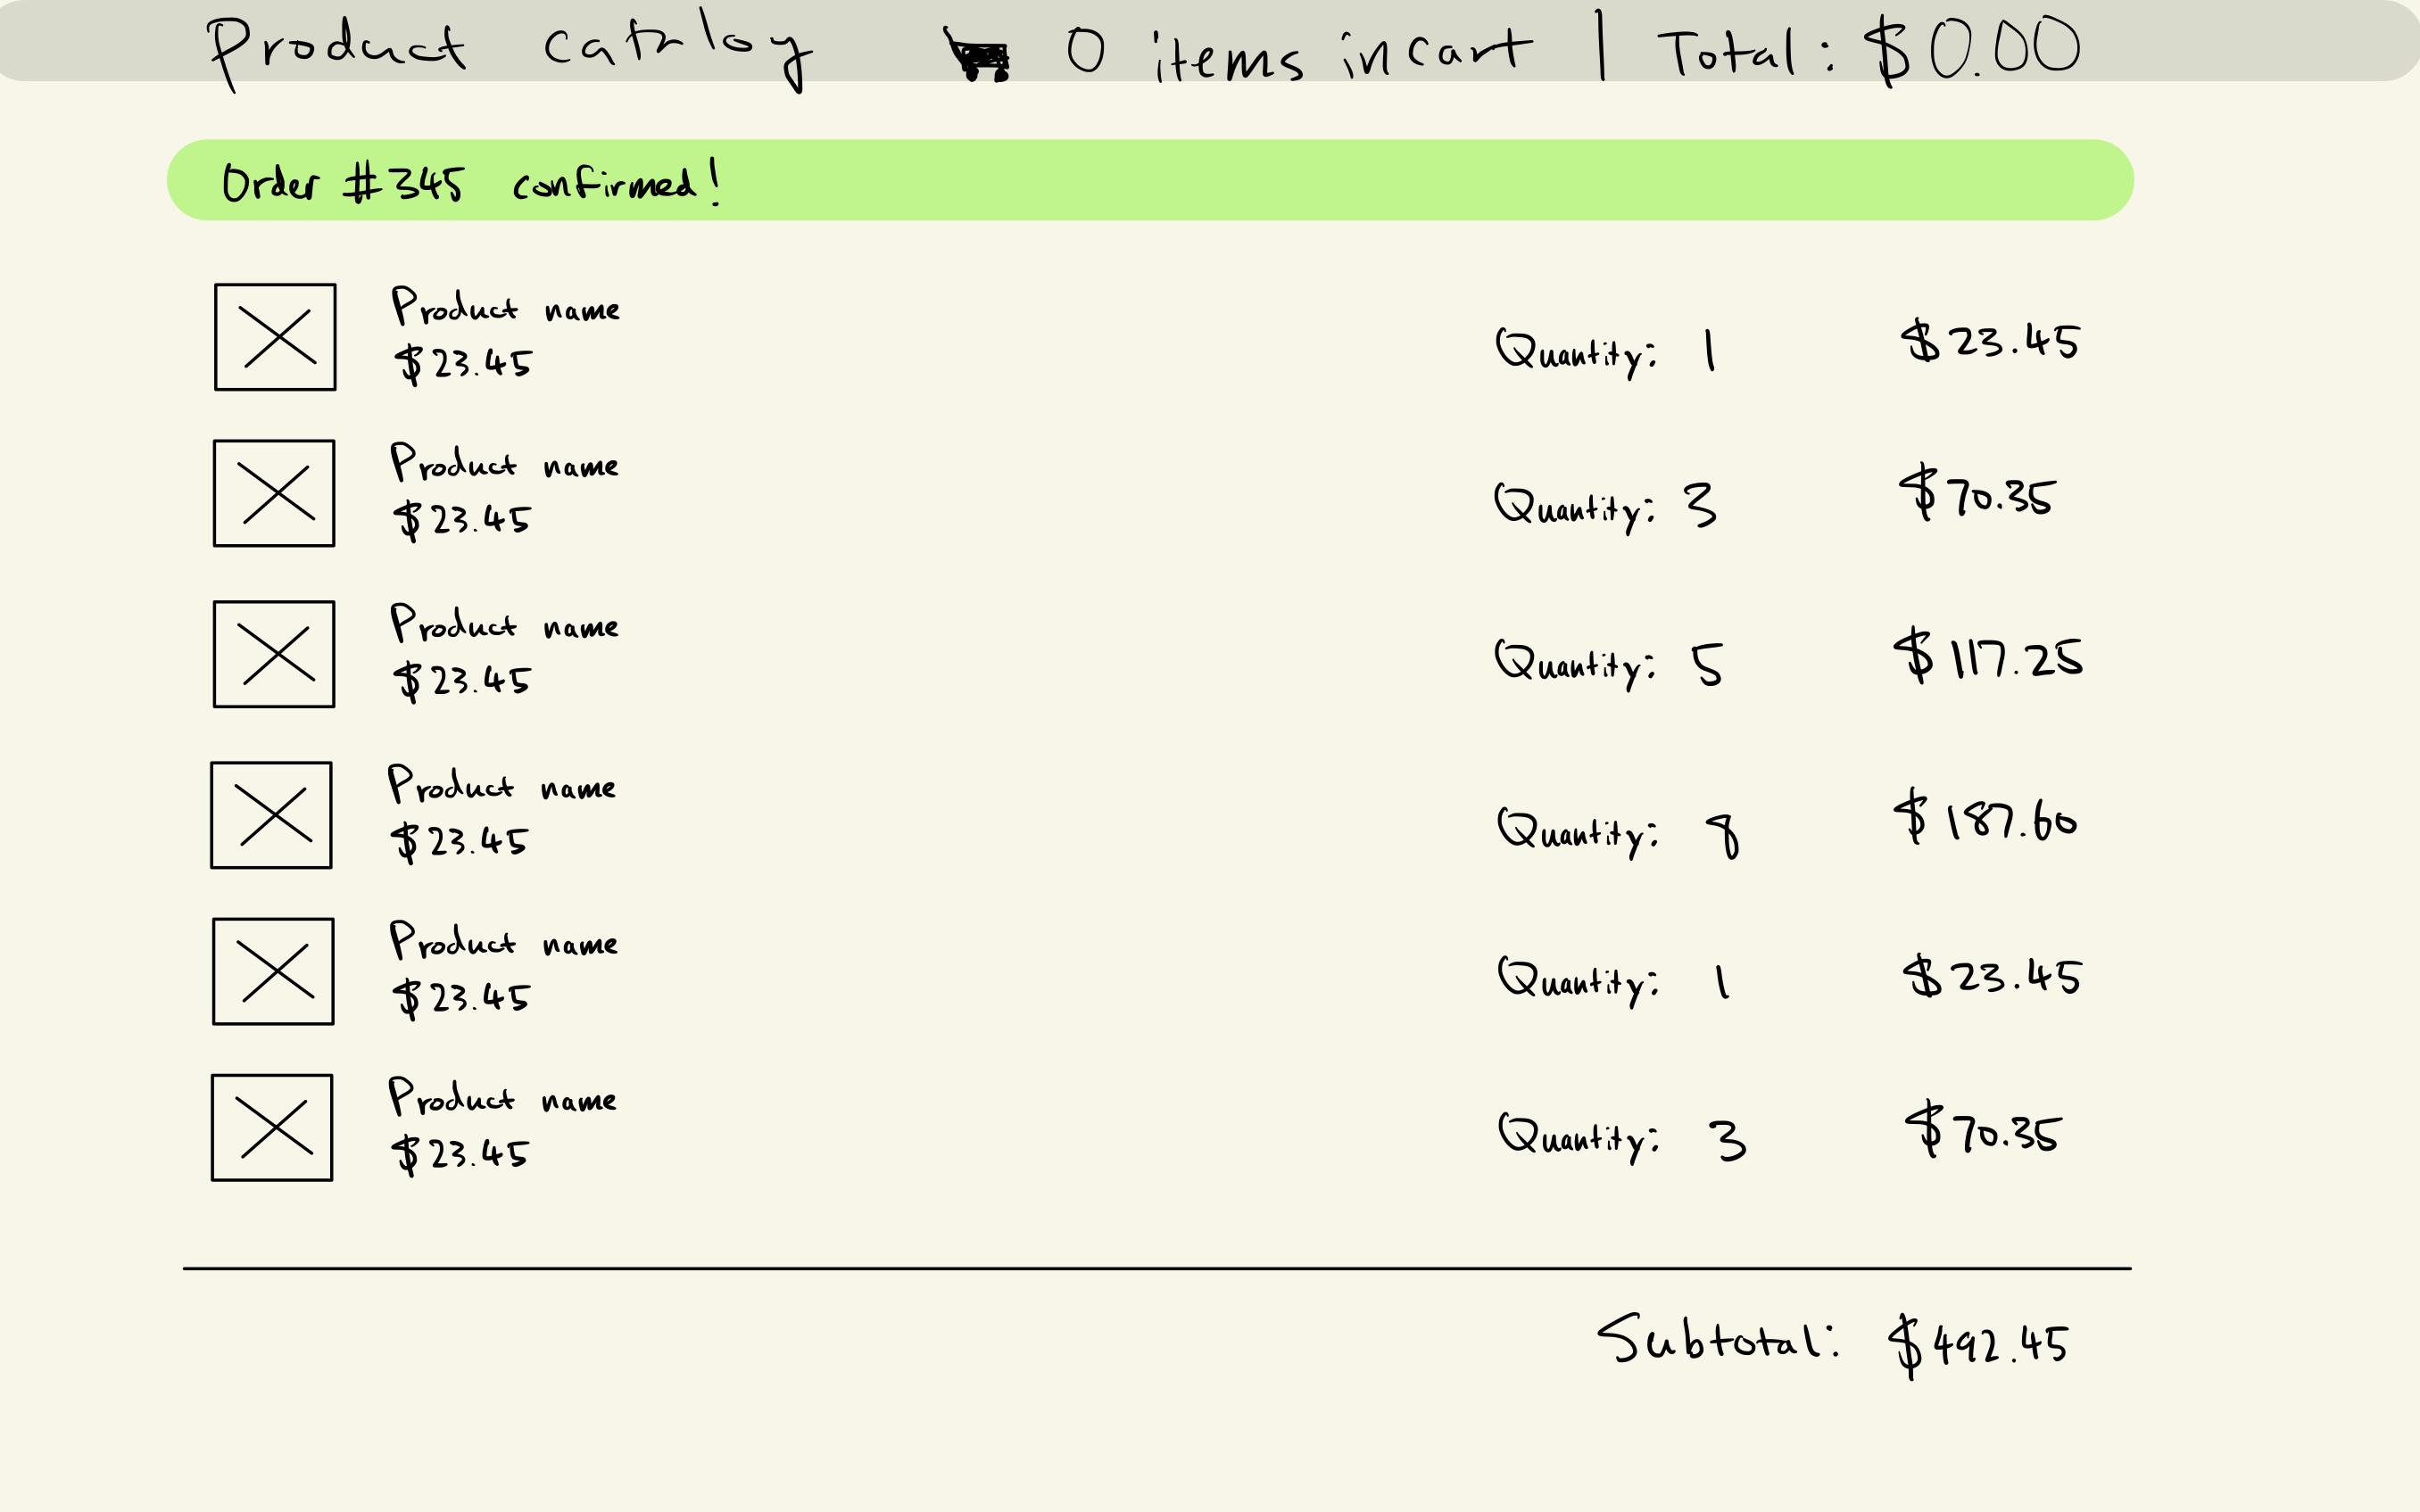 Product catalog 0 items in cart | Total: $0.00
Order #345 confirmed!
Product name
$23.45
Quantity: 1 $23.45
Product name
$23.45
Quantity: 3 $70.35
Product name
$23.45
Quantity: 5 $117.25
Product name
$23.45
Quantity: 8 $187.60
Product name
$23.45
Quantity: 1 $23.45
Product name
$23.45
Quantity: 3 $70.35
Subtotal: $492.45